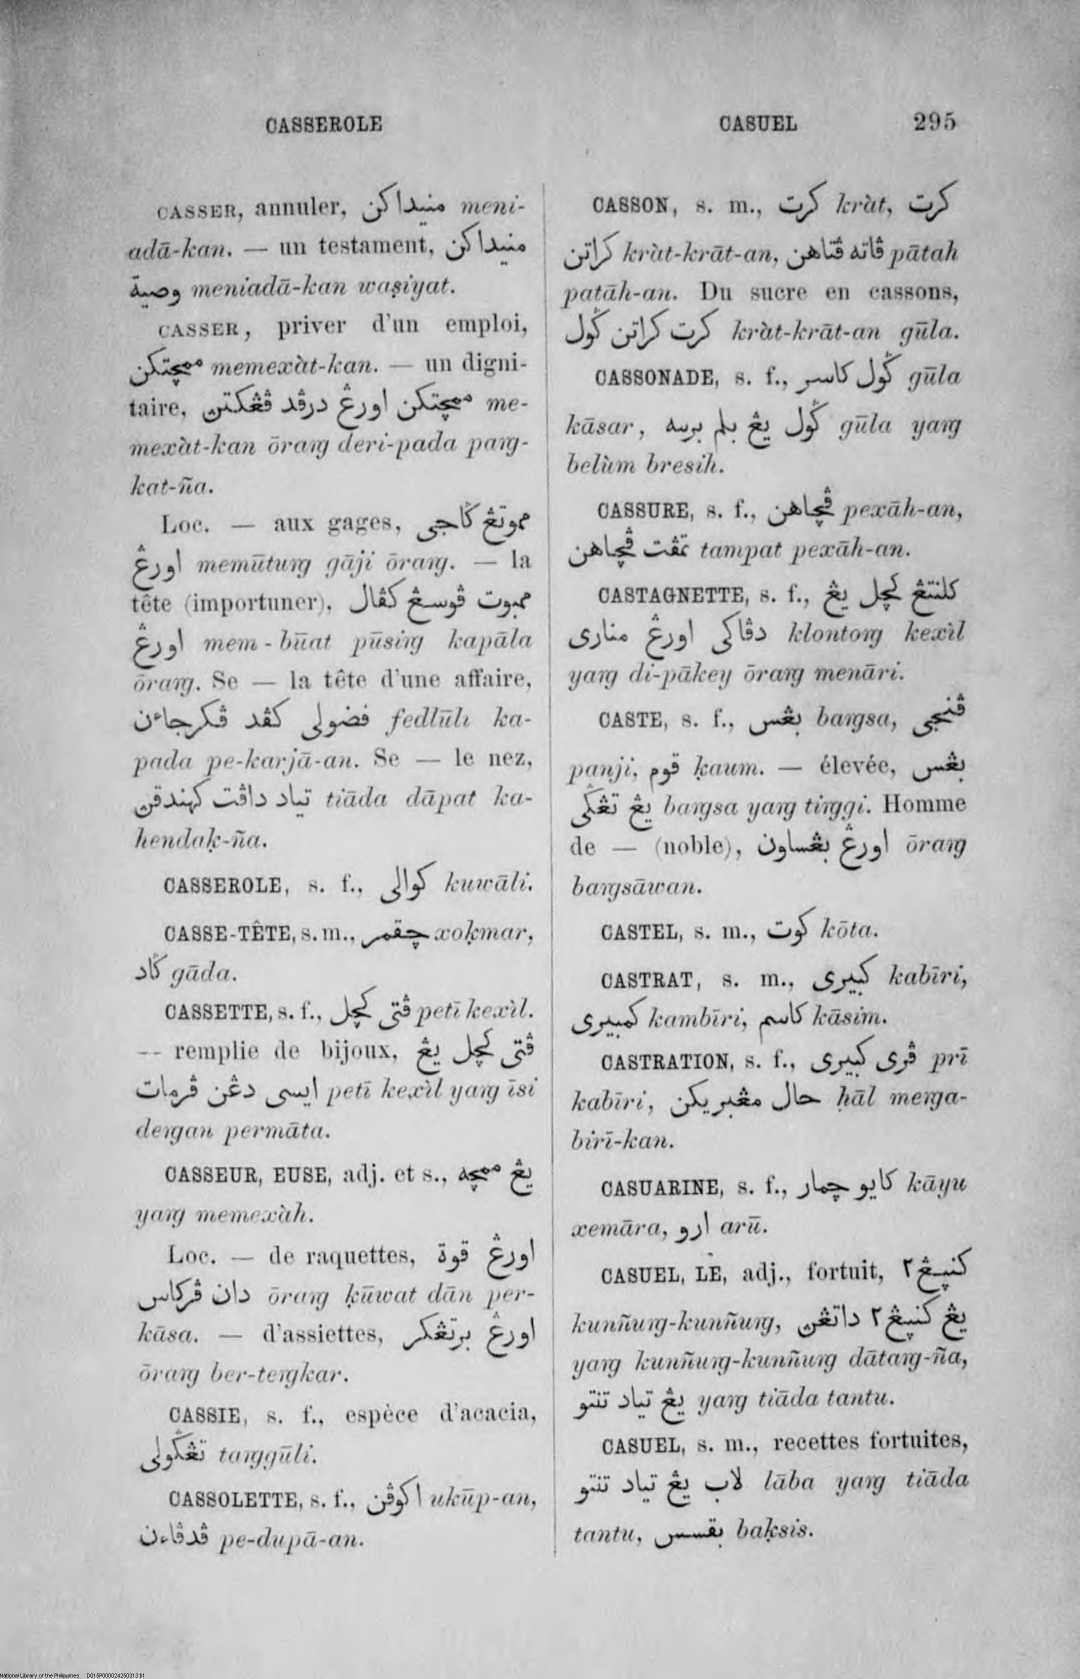 CASSEROLE
CASUEL 295
CASSER, annuler, منيداكن meni-
adā-kan. — un testament, منيداكن
وصية meniadā-kan waṣiyat.
CASSER, priver d'un emploi,
ممچتكن memexàt-kan. — un digni-
taire, ممچتكن اورڠ درڤد ڤڠكتن me-
mexàt-kan ōraŋ deri-pada paŋ-
kat-ña.
Loc. — aux gages, مموتڠ ڬاجى
اورڠ memūtuŋ gāji ōraŋ. — la
tête (importuner), ممبوت ڤوسڠ كڤال
اورڠ mem-būat pūsiŋ kapāla
ōraŋ. Se — la tête d'une affaire,
فضولى كڤد ڤكرجاءن fedlūlı ka-
pada pe-karjā-an. Se — le nez,
تياد داڤت كهندقن tiāda dāpat ka-
hendaḳ-ña.
CASSEROLE, s. f., كوالى kuwāli.
CASSE-TÊTE, s. m., چقمر xoḳmar,
ڬاد gāda.
CASSETTE, s. f., ڤتى كچل petī kexìl.
— remplie de bijoux, ڤتى كچل يڠ
ايسى دڠن ڤرمات petī kexìl yaŋ īsi
deŋan permāta.
CASSEUR, EUSE, adj. et s., يڠ ممچه
yaŋ memexàh.
Loc. — de raquettes, اورڠ قوة
دان ڤركاس ōraŋ ḳūwat dān per-
kāsa. — d'assiettes, اورڠ برتڠكر
ōraŋ ber-teŋkar.
CASSIE, s. f., espèce d'acacia,
تڠڬولى taŋgūli.
CASSOLETTE, s. f., اكوڤن ukūp-an,
ڤدڤاءن pe-dupā-an.
CASSON, s. m., كرت kràt, كرت
كراتن kràt-krāt-an, ڤاته ڤتاهن pātah
patāh-an. Du sucre en cassons,
كرت كراتن ڬول kràt-krāt-an gūla.
CASSONADE, s. f., ڬول كاسر gūla
kāsar, ڬول يڠ بلم برسه gūla yaŋ
belùm bresih.
CASSURE, s. f., ڤچاهن pexāh-an,
تمڤت ڤچاهن tampat pexāh-an.
CASTAGNETTE, s. f., كلنتڠ كچل يڠ
دڤاكى اورڠ منارى klontoŋ kexìl
yaŋ di-pākey ōraŋ menāri.
CASTE, s. f., بڠس baŋsa, ڤنجى
panji, قوم ḳaum. — élevée, بڠس
يڠ تڠڬى baŋsa yaŋ tiŋgi. Homme
de — (noble), اورڠ بڠساون ōraŋ
baŋsāwan.
CASTEL, s. m., كوت kōta.
CASTRAT, s. m., كبيرى kabīri,
كمبيرى kambīri, كاسم kāsim.
CASTRATION, s. f., ڤرى كبيرى prī
kabīri, حال مڠبريكن ḥāl meŋa-
birī-kan.
CASUARINE, s. f., كايو چمار kāyu
xemāra, ارو arū.
CASUEL, LE, adj., fortuit, كنڽڠ٢
kunñuŋ-kunñuŋ, يڠ كنڽڠ٢ داتڠن
yaŋ kunñuŋ-kunñuŋ dātaŋ-ña,
يڠ تياد تنتو yaŋ tiāda tantu.
CASUEL, s. m., recettes fortuites,
لاب يڠ تياد تنتو lāba yaŋ tiāda
tantu, بقسس baḳsis.
National Library of the Philippines